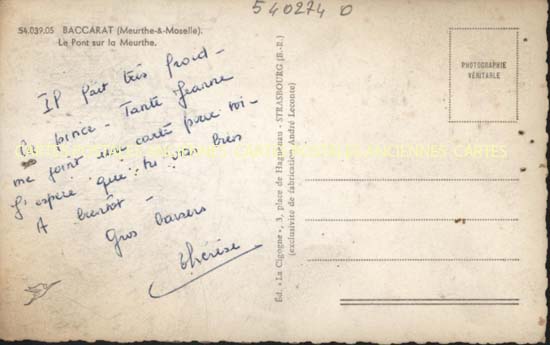 540274 D
54.039.05 BACCARAT (Meurthe-&-Moselle).
Le Pont sur la Meurthe.
Il fait très froid -
Ça pince - Tante Jeanne
me joint une carte pour toi -
J'espère que tu vas bien
A bientôt -
Gros baisers
Thérèse
Éd. « La Cigogne », 3, place de Haguenau - STRASBOURG (B.-R.)
(exclusivité de fabrication André Leconte)
PHOTOGRAPHIE
VÉRITABLE